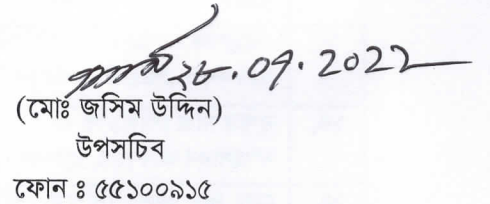 ২৮.০৭.২০২২
(মোঃ জসিম উদ্দিন)
উপসচিব
ফোন ঃ ৫৫১০০৯১৫